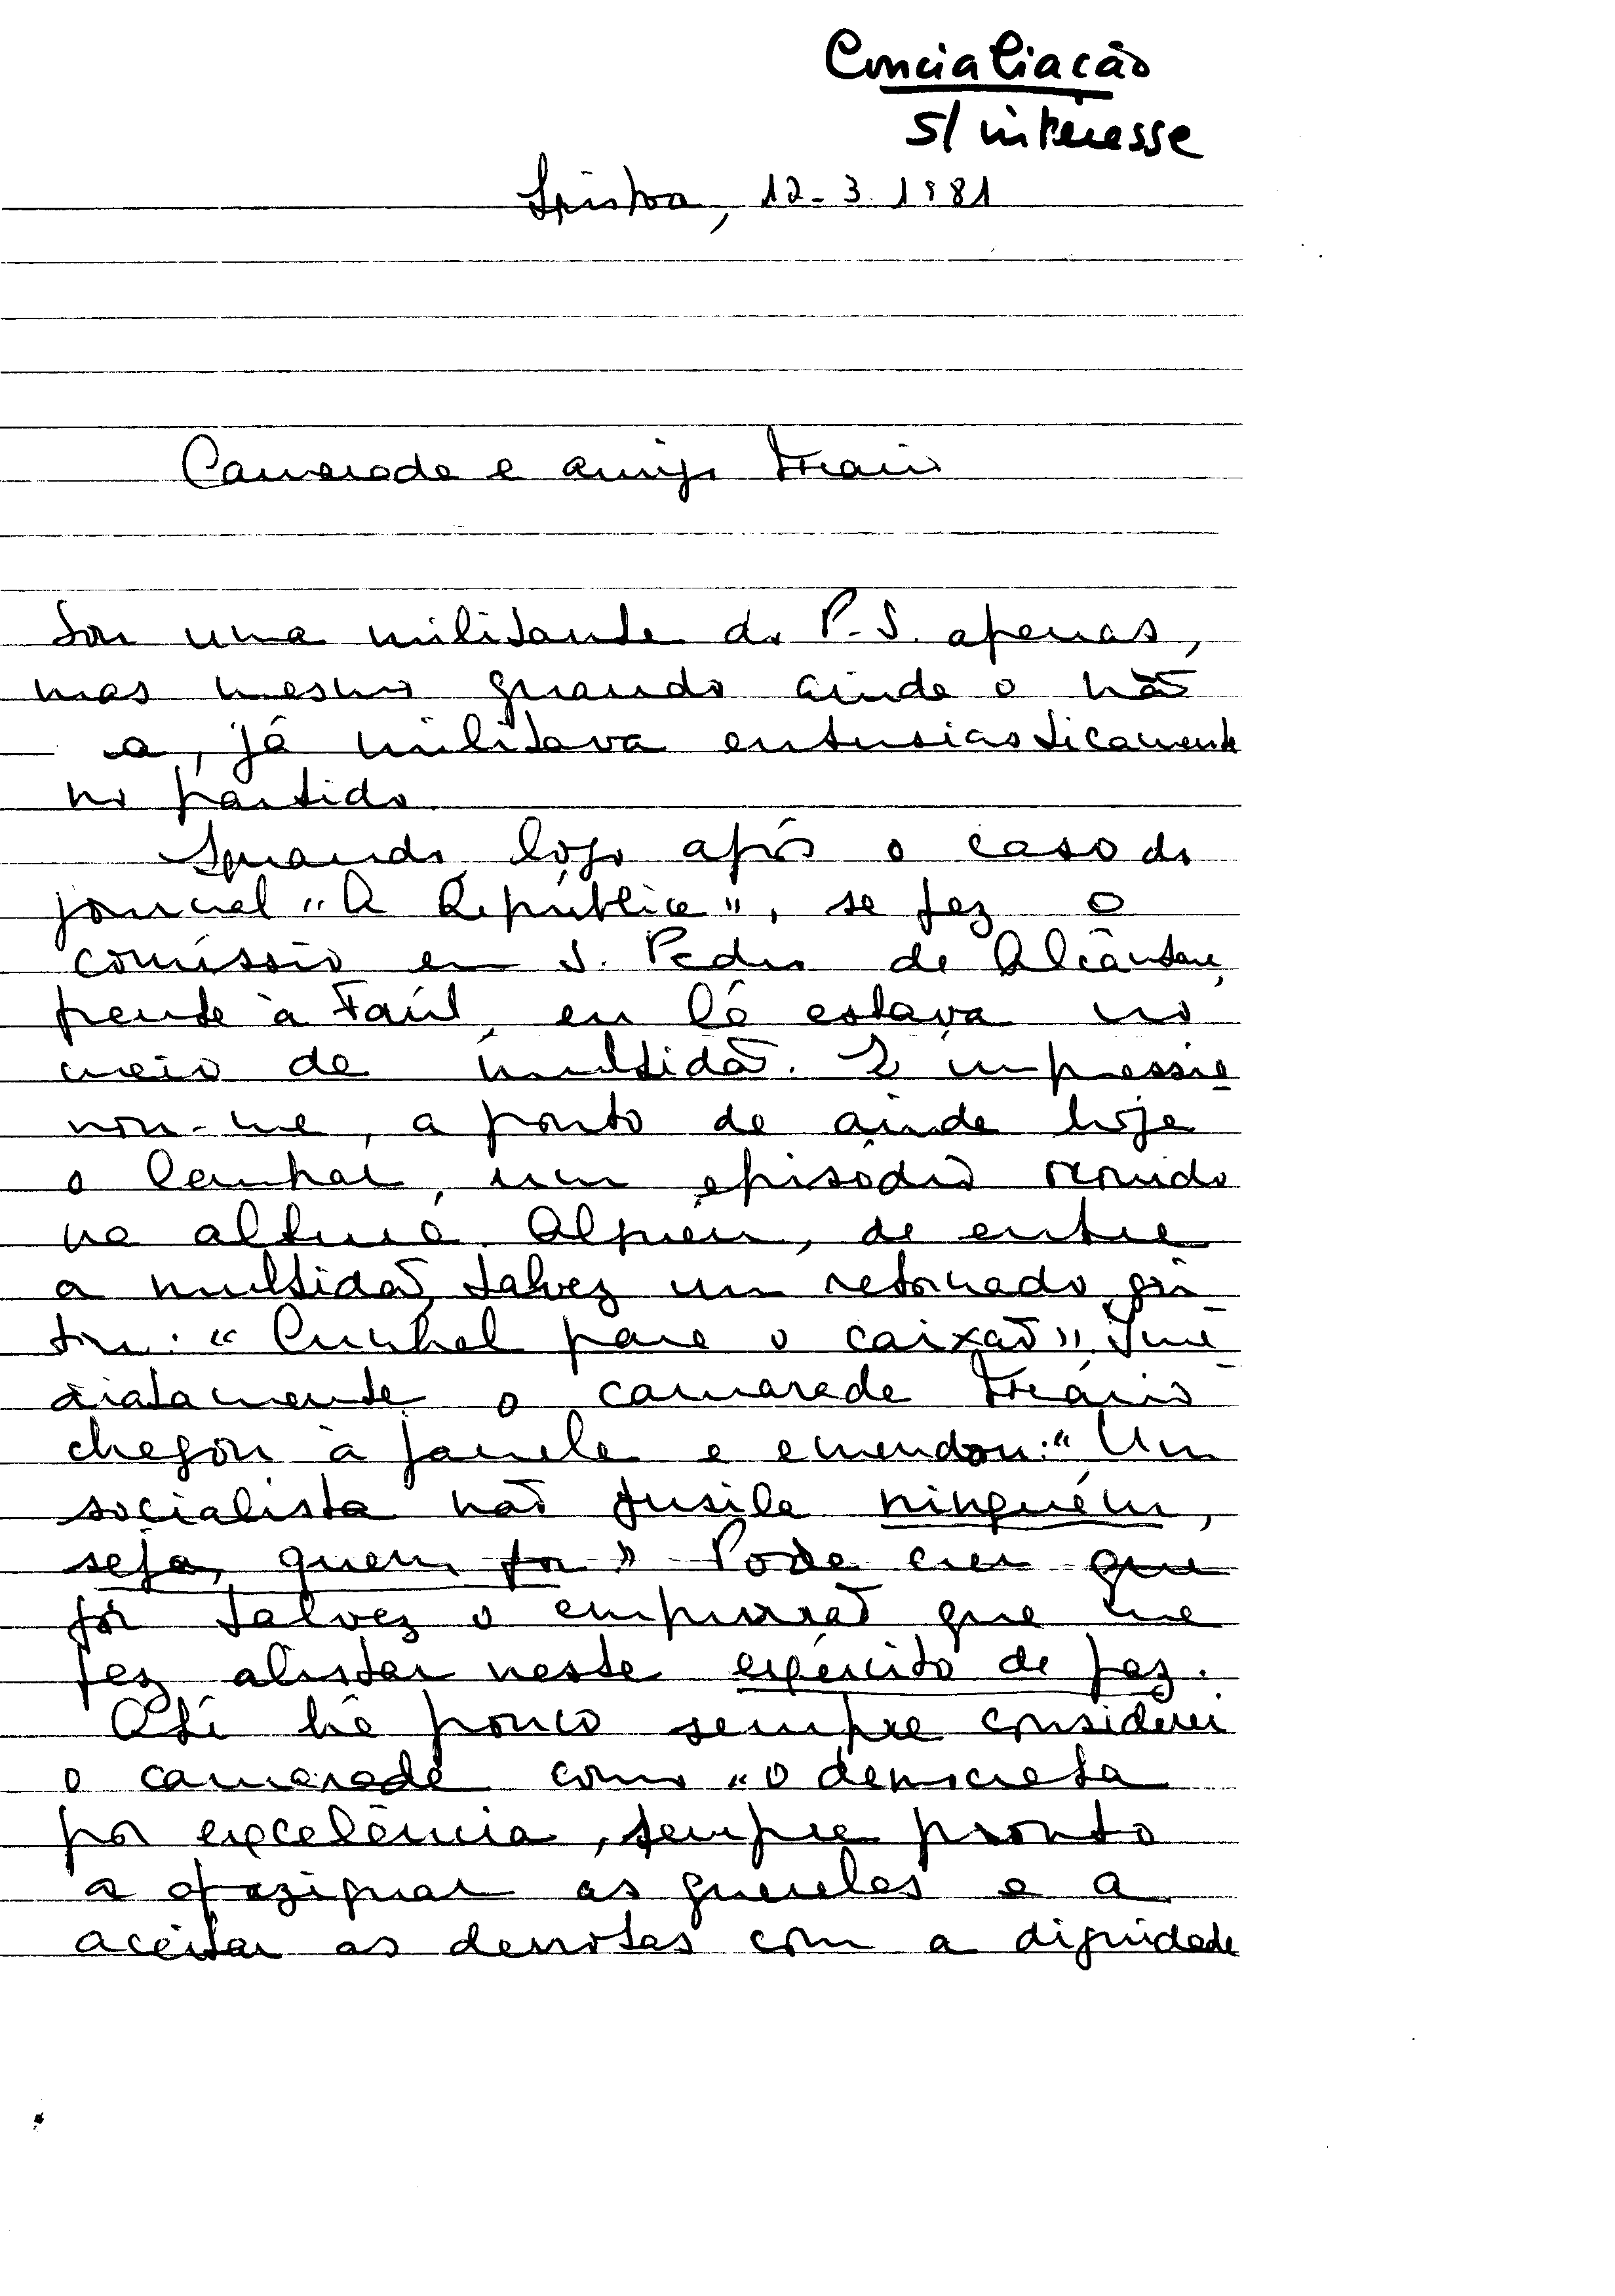 Concialiação
s/ interesse
Lisboa, 12-3-1981
Camarada e amigo Mário
Sou uma militante do P.S. apenas,
mas mesmo quando ainda o não
a, já militava entusiasticamente
no partido.
Quando, logo após o caso do
jornal "A República", se fez o
comissio em S. Pedro de Alcântara,
frente à Faúl, eu lá estava no
meio da multidão. E impressio
nou-me, a ponto de ainda hoje
o lembrar, um episódio ocorrido
na altura. Alguém, de entre
a multidão, talvez um retornado, gri-
tou: "Cunhal para o caixão". Ime-
diatamente o camarada Mário
chegou à janela e emendou: "Um
socialista não fusila ninguém,
seja, quem for" Pode crer que
foi talvez o empurrão que me
fez alistar neste exército de paz.
Até há pouco sempre considerei
o camarada como "o democrata
por excelência, sempre pronto
a apaziguar as querelas e a
aceitar as derrotas com a dignidade